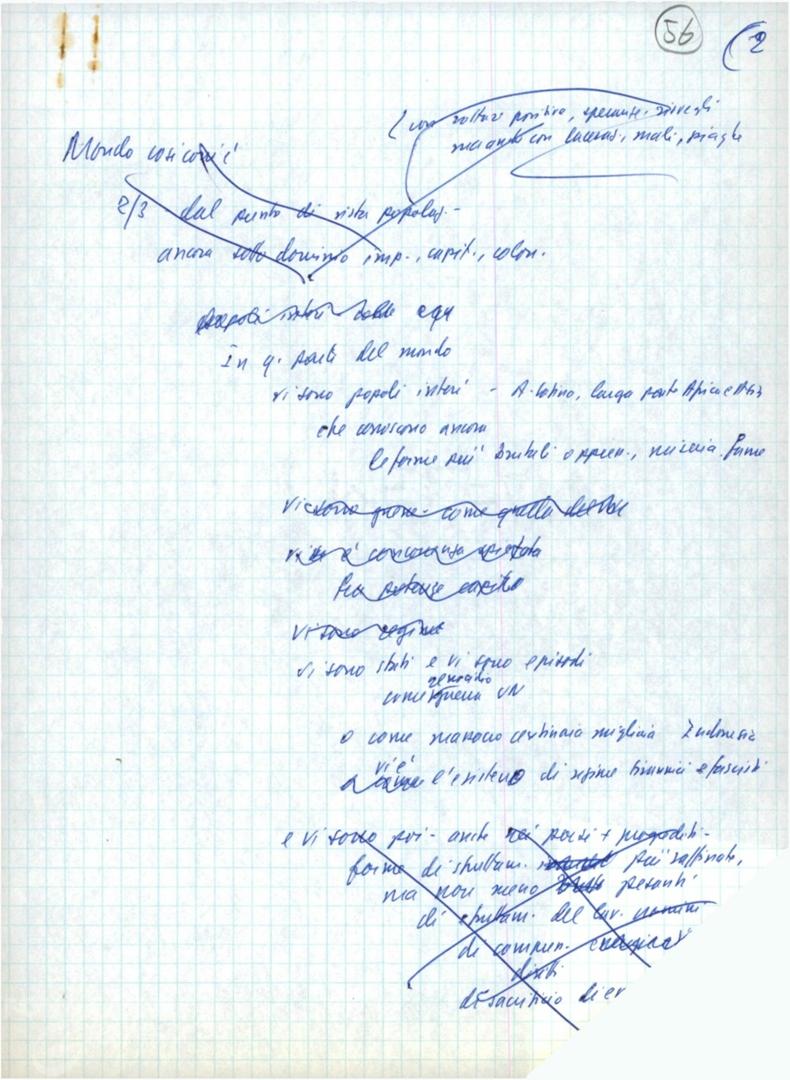 56 (2
con rotture positive, speranze, risvegli
ma anche con laceraz., mali, piaghe
Mondo così com'è
2/3 dal punto di vista popolaz. -
ancora sotto dominio imp., capit., colon.
popoli interi
In q. parte del mondo
vi sono popoli interi - A. latina, larga parte Africa e Asia
che conoscono ancora
le forme più brutali oppress., miseria, fame
vi sono guerre - come quella del
vi è concorrenza spietata
fra potenze capital
vi sono regimi
vi sono stati e vi sono episodi
genocidio
come guerra VN
o come massacro centinaia migliaia Indonesia
vi è
l'esistenza di regimi tirannici e fascisti
e vi sono poi - anche nei paesi + progrediti -
forme di sfruttam. più raffinate,
ma non meno pesanti
di sfruttam. del lav. uomini
di compress.
diritti
di sacrificio di